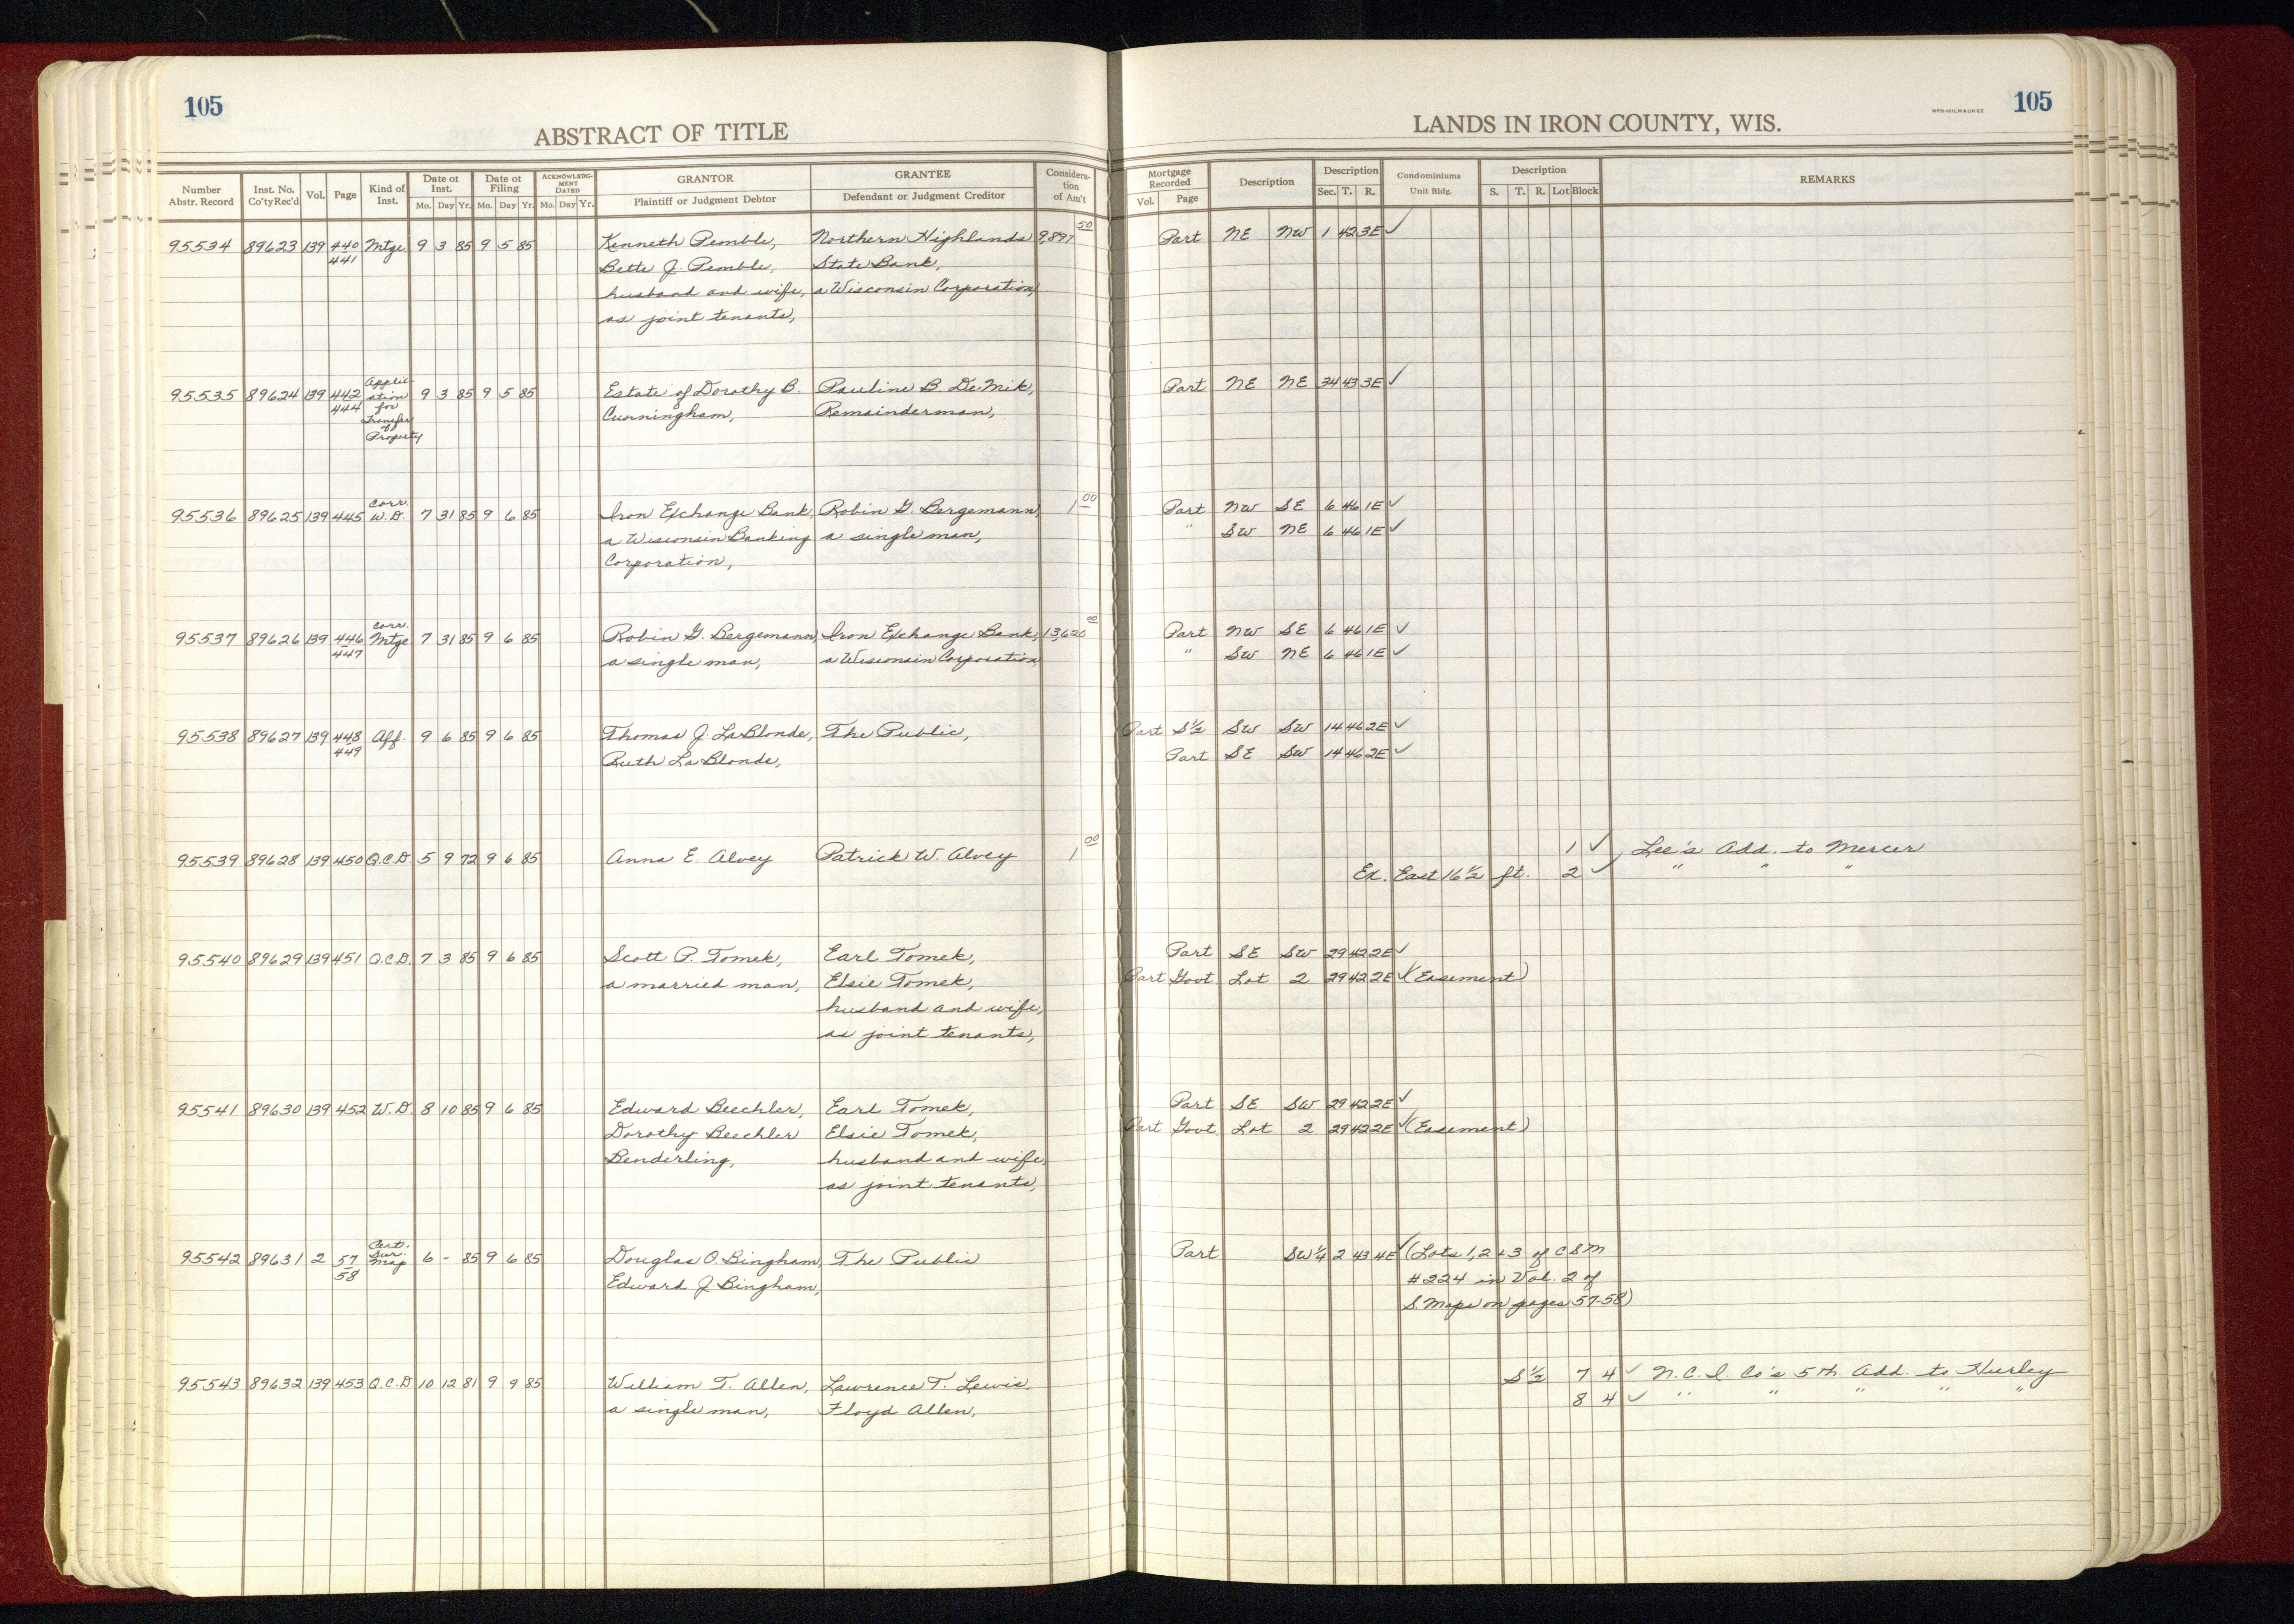 105
ABSTRACT OF TITLE
LANDS IN IRON COUNTY, WIS.
RPB-MILWAUKEE
105
Number Abstr. Record Inst. No. Co'ty Rec'd Vol. Page Kind of Inst. Date of Inst. Mo. Day Yr. Date of Filing Mo. Day Yr. ACKNOWLEDG-MENT DATED Mo. Day Yr. GRANTOR Plaintiff or Judgment Debtor GRANTEE Defendant or Judgment Creditor Considera-tion of Am't
Mortgage Recorded Vol. Page Description Description Sec. T. R. Condominiums Unit Bldg. Description S. T. R. Lot Block REMARKS
95534 89623 139 440 Mtge. 9 3 85 9 5 85 Kenneth Pemble, Northern Highlands 9,897 50 Part NE NW 1 42 3E ✓
441 Bette J. Pemble, State Bank,
husband and wife, a Wisconsin Corporation,
as joint tenants,
95535 89624 139 442 Applic- 9 3 85 9 5 85 Estate of Dorothy B. Pauline B. DeMik, Part NE NE 34 43 3E ✓
444 ation for Cunningham, Remainderman,
Transfer
of
Property
95536 89625 139 445 Corr. W.D. 7 31 85 9 6 85 Iron Exchange Bank, Robin G. Bergemann, 1 00 Part NW SE 6 46 1E ✓
a Wisconsin Banking a single man, " SW NE 6 46 1E ✓
Corporation,
95537 89626 139 446 Corr. Mtge 7 31 85 9 6 85 Robin G. Bergemann, Iron Exchange Bank, 13,620 00 Part NW SE 6 46 1E ✓
447 a single man, a Wisconsin Corporation, " SW NE 6 46 1E ✓
95538 89627 139 448 Aff. 9 6 85 9 6 85 Thomas J. LaBlonde, The Public, Part S½ SW SW 14 46 2E ✓
449 Ruth LaBlonde, Part SE SW 14 46 2E ✓
95539 89628 139 450 Q.C.D. 5 9 72 9 6 85 Anna E. Alvey Patrick W. Alvey 1 00 1 ✓ Lee's Add. to Mercer
Ex. East 16½ ft. 2 ✓ " " "
95540 89629 139 451 Q.C.D. 7 3 85 9 6 85 Scott P. Tomek, Earl Tomek, Part SE SW 29 42 2E ✓
a married man, Elsie Tomek, Part Govt Lot 2 29 42 2E ✓ (Easement)
husband and wife,
as joint tenants,
95541 89630 139 452 W.D. 8 10 85 9 6 85 Edward Beechler, Earl Tomek, Part SE SW 29 42 2E ✓
Dorothy Beechler Elsie Tomek, Part Govt. Lot 2 29 42 2E ✓ (Easement)
Benderling, husband and wife,
as joint tenants,
95542 89631 2 57 Cert. Sur. Map 6 - 85 9 6 85 Douglas O. Bingham, The Public Part SW¼ 2 43 4E ✓ (Lots 1, 2 & 3 of CSM
58 Edward J. Bingham, #224 in Vol. 2 of
S. Maps on pages 57-58)
95543 89632 139 453 Q.C.D 10 12 81 9 9 85 William T. Allen, Lawrence T. Lewis, S½ 7 4 ✓ N.C.I. Co's 5th Add. to Hurley
a single man, Floyd Allen, 8 4 ✓ " " " " "